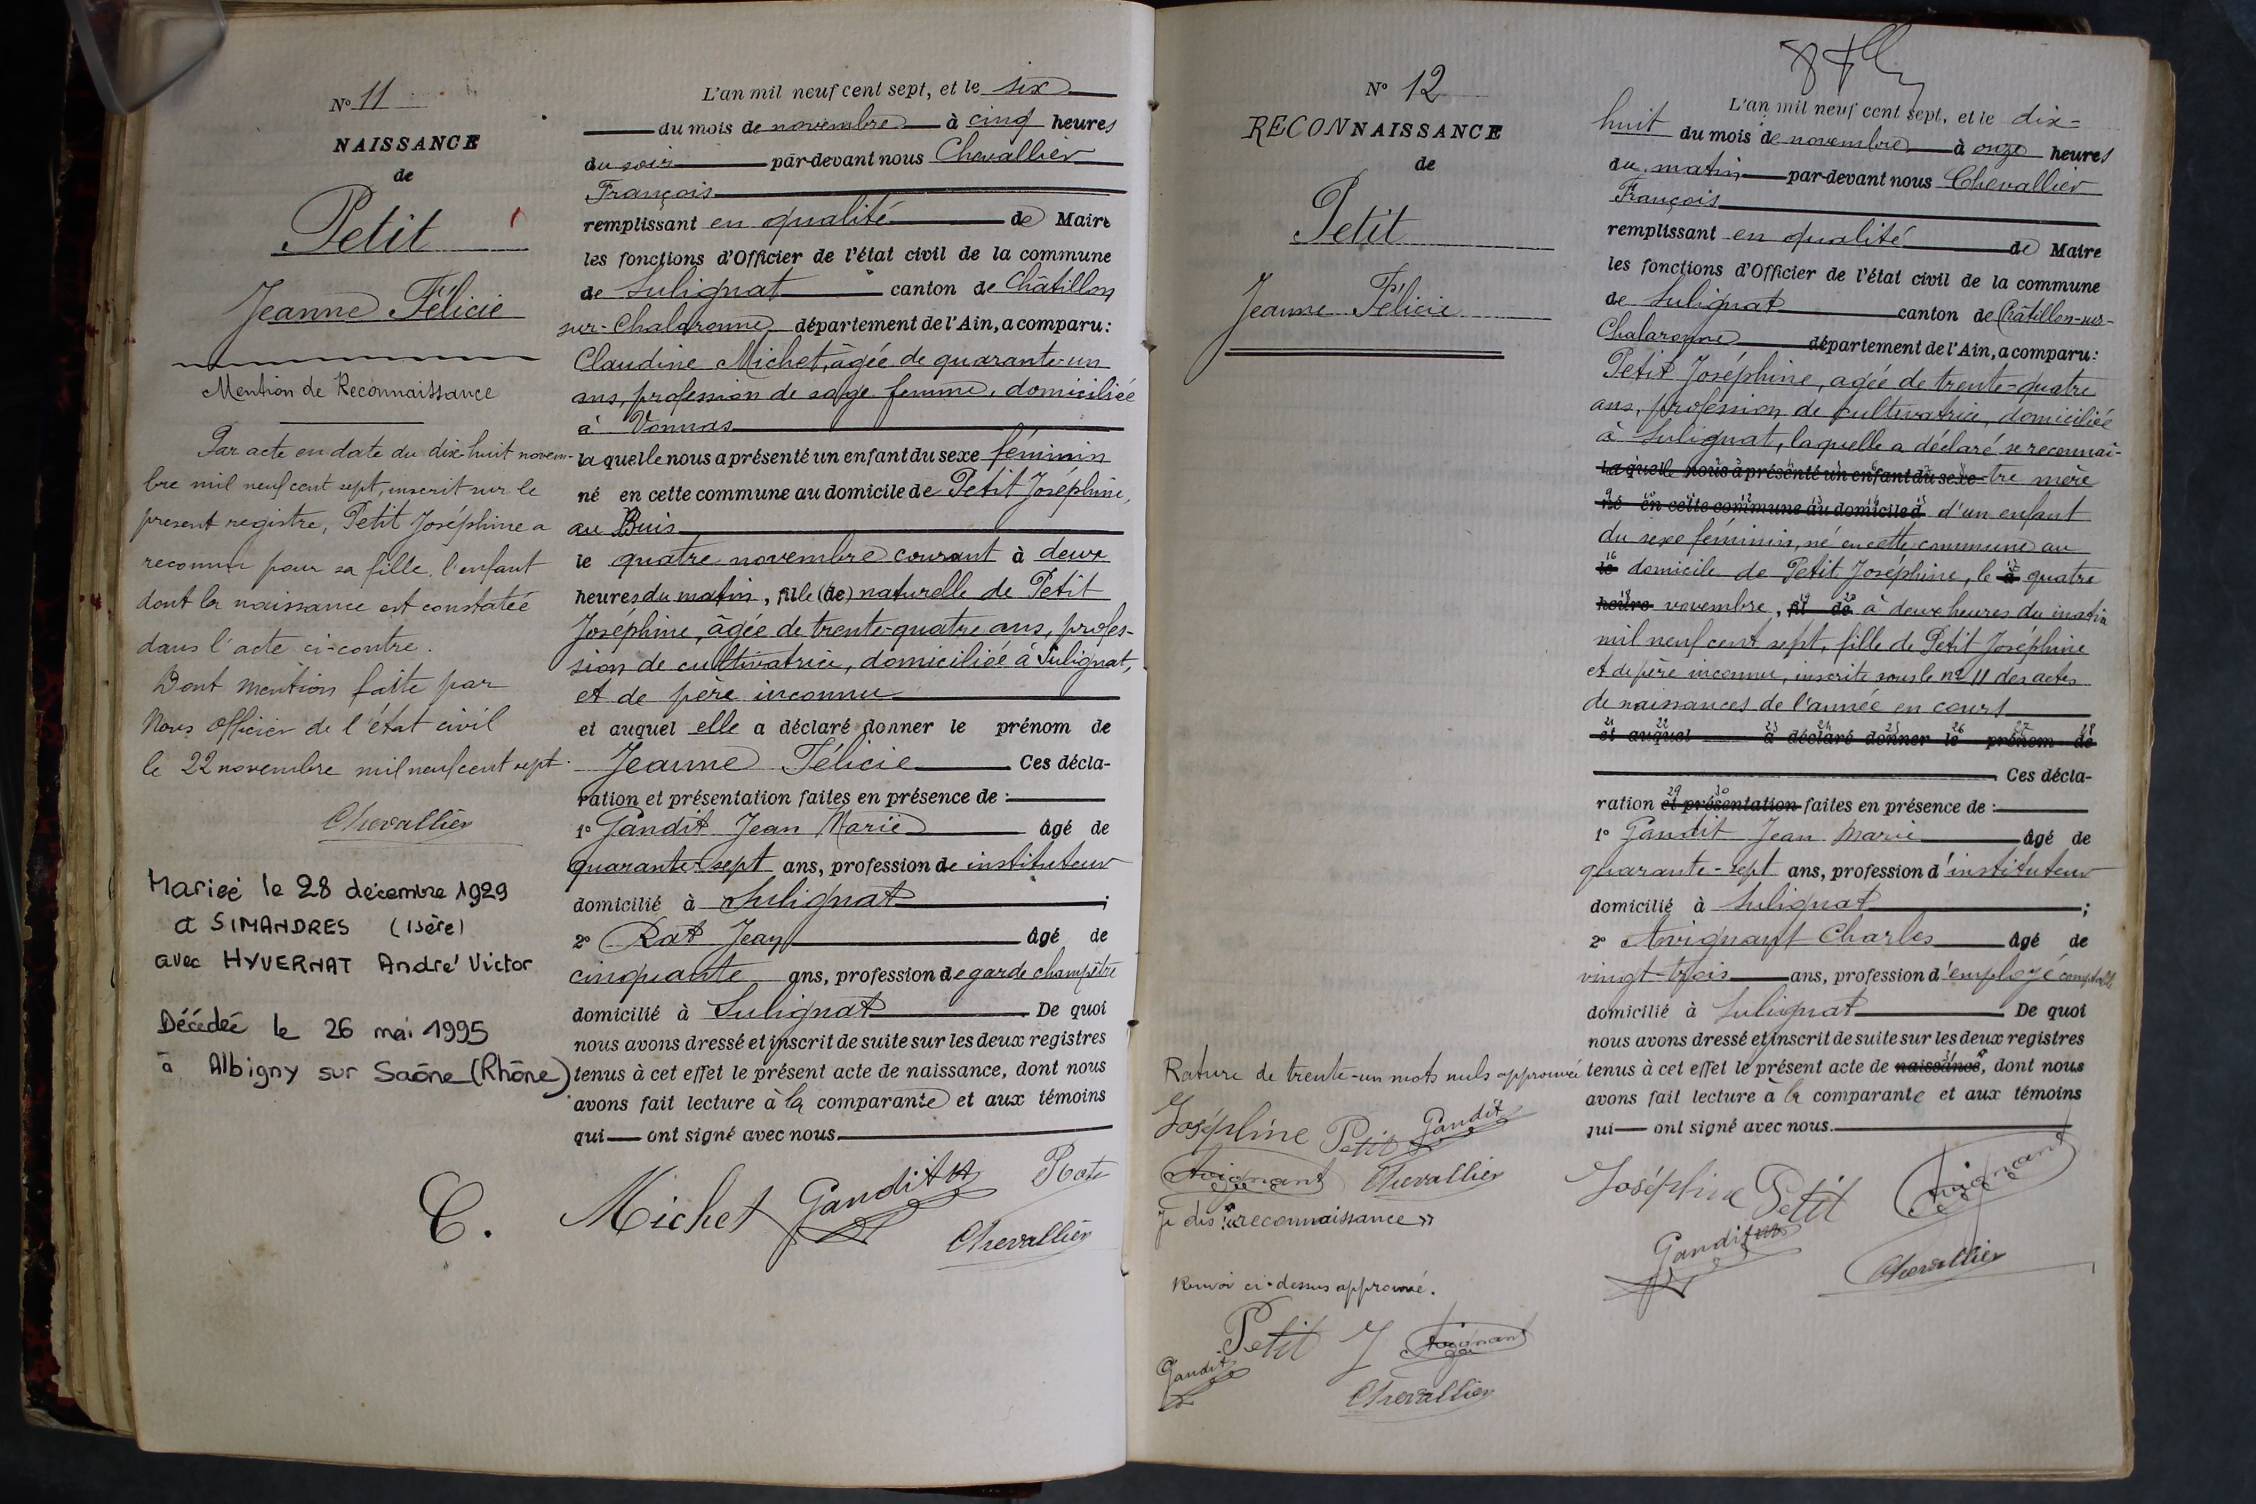 N° 11
NAISSANCE
de
Petit
Jeanne Félicie
Mention de Reconnaissance
Par acte en date du dix-huit novem-
bre mil neuf cent sept, inscrit sur le
present registre, Petit Joséphine a
reconnu pour sa fille, l'enfant
dont la naissance est constatée
dans l'acte ci-contre.
Dont mention faite par
Nous officier de l'état civil
le 22 novembre mil neuf cent sept.
Chevallier
Mariée le 28 décembre 1929
à SIMANDRES (Isère)
avec HYVERNAT André Victor
Décédée le 26 mai 1995
à Albigny sur Saône (Rhône)
L'an mil neuf cent sept, et le six
du mois de novembre à cinq heures
du soir par-devant nous Chevallier
François
remplissant en qualité de Maire
les fonctions d'Officier de l'état civil de la commune
de Sulignat canton de Châtillon
sur-Chalaronne département de l'Ain, a comparu:
Claudine Michet, âgée de quarante-un
ans, profession de sage femme, domiciliée
à Vonnas
laquelle nous a présenté un enfant du sexe féminin
né en cette commune au domicile de Petit Joséphine,
au Buis
le quatre novembre courant à deux
heures du matin, fille (de) naturelle de Petit
Joséphine, âgée de trente-quatre ans, profes-
sion de cultivatrice, domiciliée à Sulignat,
et de père inconnu
et auquel elle a déclaré donner le prénom de
Jeanne Félicie Ces décla-
ration et présentation faites en présence de :
1° Gandit Jean Marie âgé de
quarante-sept ans, profession de instituteur
domicilié à Sulignat ;
2° Rat Jean âgé de
cinquante ans, profession de garde champêtre
domicilié à Sulignat De quoi
nous avons dressé et inscrit de suite sur les deux registres
tenus à cet effet le présent acte de naissance, dont nous
avons fait lecture à la comparante et aux témoins
qui ont signé avec nous.
C. Michet Gandit Rat
Chevallier
N° 12
RECONNAISSANCE
de
Petit
Jeanne Félicie
Rature de trente-un mots nuls approuvée
Joséphine Petit Gandit
Avignant Chevallier
Je dis : « reconnaissance »
Renvoi ci-dessus approuvé.
Petit J Avignant
Gandit
Chevallier
L'an mil neuf cent sept, et le dix-
huit du mois de novembre à onze heures
du matin par-devant nous Chevallier
François
remplissant en qualité de Maire
les fonctions d'Officier de l'état civil de la commune
de Sulignat canton de Châtillon-sur-
Chalaronne département de l'Ain, a comparu:
Petit Joséphine, agée de trente-quatre
ans, profession de cultivatrice, domiciliée
à Sulignat, laquelle a déclaré se reconnaî-
laquelle nous a présenté un enfant du sexe tre mère
né en cette commune au domicile d d'un enfant
du sexe féminin, né en cette commune au
le domicile de Petit Joséphine, le à quatre
heure novembre, fil de à deux heures du matin
mil neuf cent sept, fille de Petit Joséphine
et de père inconnu, inscrite sous le n° 11 des actes
de naissances de l'année en cours
et auquel a déclaré donner le prénom de
Ces décla-
ration et présentation faites en présence de :
1° Gandit Jean Marie âgé de
quarante-sept ans, profession d'instituteur
domicilié à Sulignat ;
2° Avignant Charles âgé de
vingt-trois ans, profession d'employé comptable
domicilié à Sulignat De quoi
nous avons dressé et inscrit de suite sur les deux registres
tenus à cet effet le présent acte de naissance, dont nous
avons fait lecture à la comparante et aux témoins
qui ont signé avec nous.
Joséphine Petit Avignant
Gandit
Chevallier